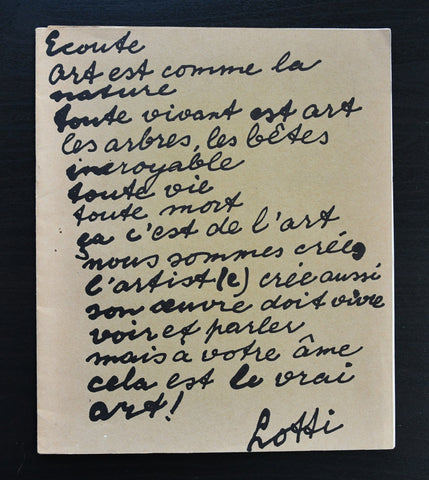 Ecoute
art est comme la
nature
toute vivant est art
les arbres, les bêtes
incroyable
toute vie
toute mort
ça c'est de l'art
nous sommes crées
l'artist(e) crée aussi
son œuvre doit vivre
voir et parler
mais a votre âme
cela est le vrai
art!
Lotti